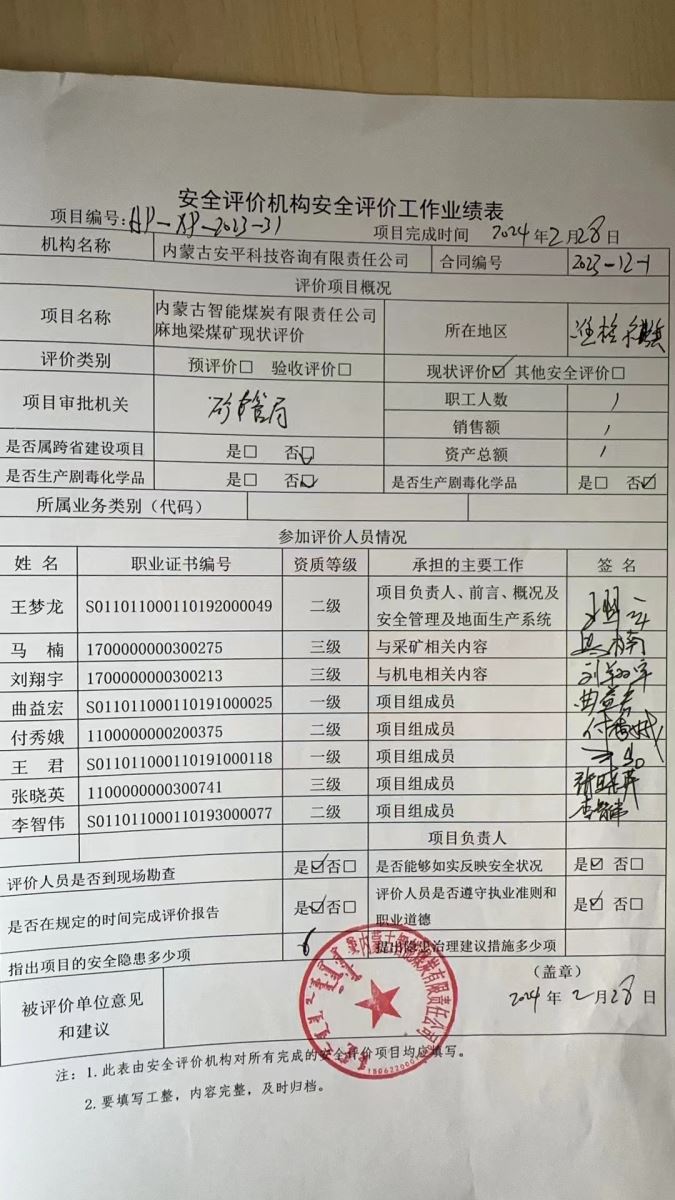 安全评价机构安全评价工作业绩表
项目编号:AP-XP-2023-31 项目完成时间 2024年2月28日
机构名称 内蒙古安平科技咨询有限责任公司 合同编号 2023-12-1
评价项目概况
项目名称 内蒙古智能煤炭有限责任公司
麻地梁煤矿现状评价 所在地区 准格尔旗
评价类别 预评价□ 验收评价□ 现状评价☑ 其他安全评价□
项目审批机关 矿管局 职工人数 /
销售额 /
是否属跨省建设项目 是□ 否☑ 资产总额 /
是否生产剧毒化学品 是□ 否☑ 是否生产剧毒化学品 是□ 否☑
所属业务类别（代码）
参加评价人员情况
姓名 职业证书编号 资质等级 承担的主要工作 签名
王梦龙 S011011000110192000049 二级 项目负责人、前言、概况及
安全管理及地面生产系统
马楠 1700000000300275 三级 与采矿相关内容 马楠
刘翔宇 1700000000300213 三级 与机电相关内容 刘翔宇
曲益宏 S011011000110191000025 一级 项目组成员
付秀娥 1100000000200375 二级 项目组成员 付秀娥
王君 S011011000110191000118 一级 项目组成员 王君
张晓英 1100000000300741 三级 项目组成员 张晓英
李智伟 S011011000110193000077 二级 项目组成员 李智伟
项目负责人
评价人员是否到现场勘查 是☑否□ 是否能够如实反映安全状况 是☑ 否□
是否在规定的时间完成评价报告 是☑否□ 评价人员是否遵守执业准则和
职业道德 是☑ 否□
指出项目的安全隐患多少项 6 提出隐患治理建议措施多少项
被评价单位意见
和建议 （盖章）
2024年2月28日
内蒙古智能煤炭有限责任公司
注：1.此表由安全评价机构对所有完成的安全评价项目均应填写。
2.要填写工整，内容完整，及时归档。